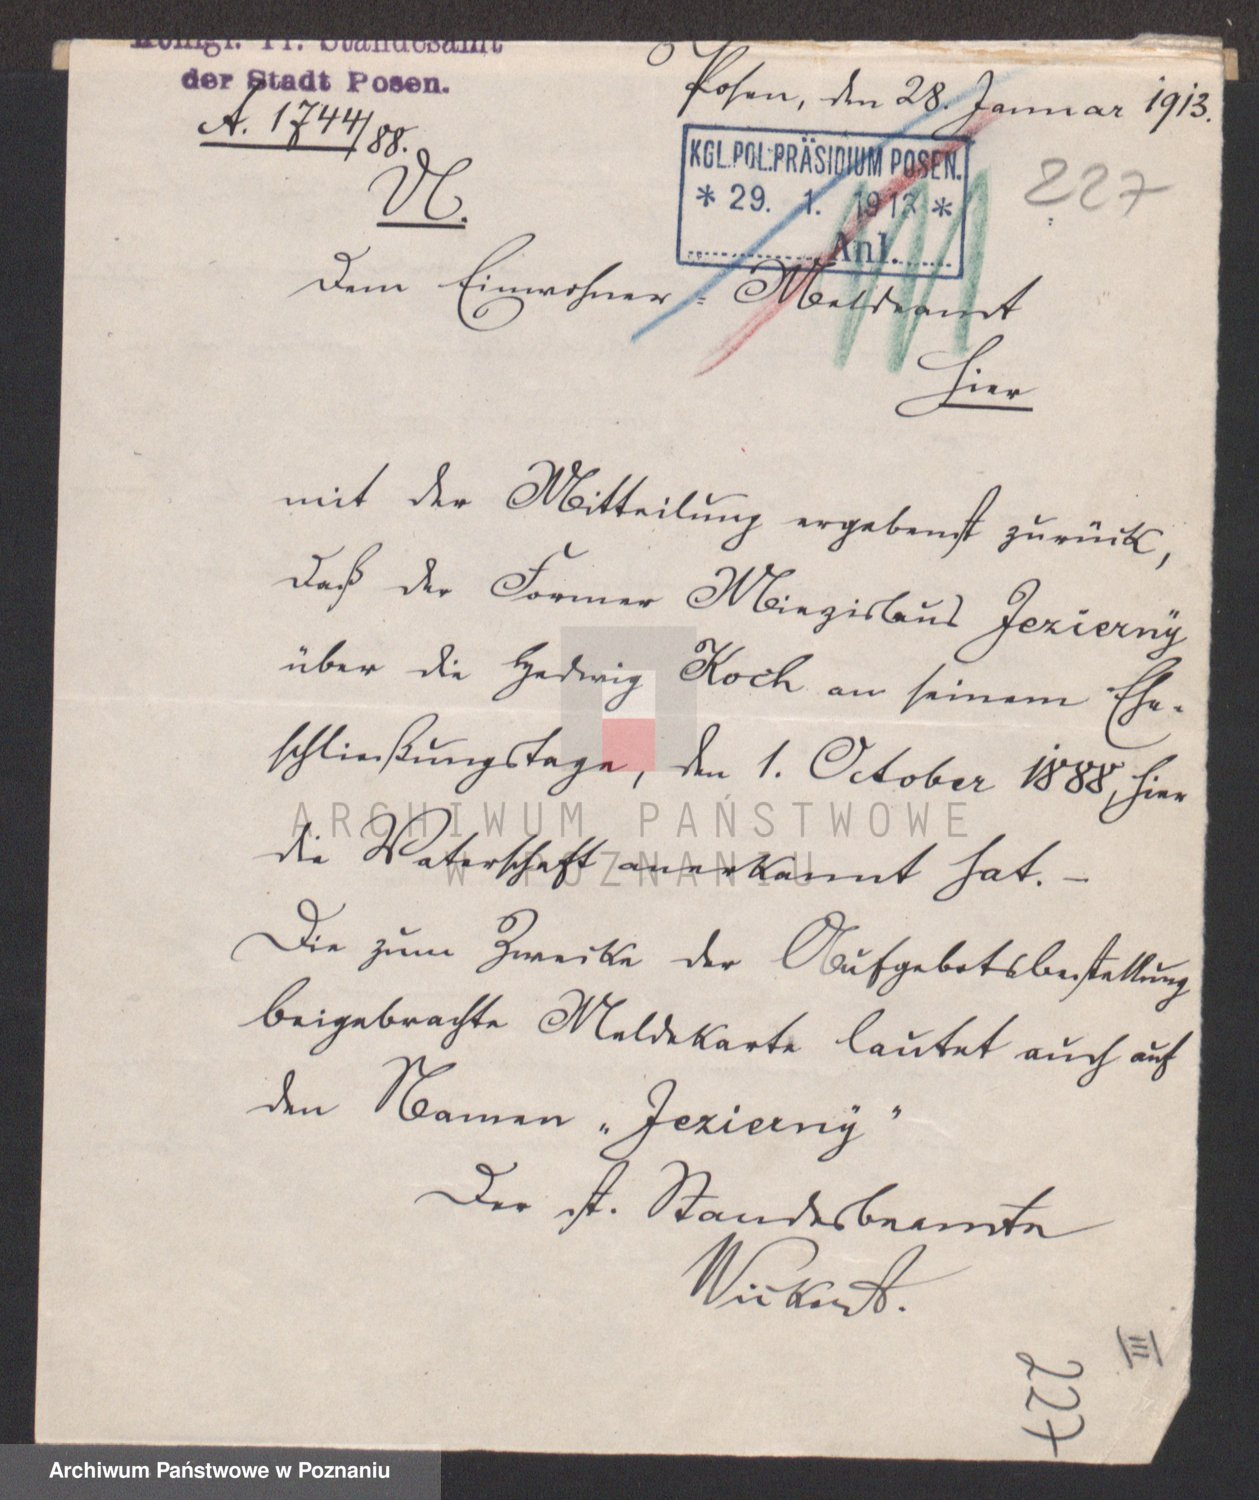 Königl. Pr. Standesamt
der Stadt Posen.
A. 1744/88.
U.
Posen, den 28. Januar 1913.
KGL.POL.PRÄSIDIUM POSEN.
* 29. 1. 1913 *
Anl.
227
Dem Einwohner-Meldeamt
hier
mit der Mitteilung ergebenst zurück,
daß der Former Miezislaus Jezierny
über die Hedwig Koch an seinem Ehe-
schließungstage, den 1. October 1888, hier
die Vaterschaft anerkannt hat. –
Die zum Zwecke der Aufgebotsbestellung
beigebrachte Meldekarte lautet auch auf
den Namen „Jezierny"
Der st. Standesbeamte
227
ARCHIWUM PAŃSTWOWE
W POZNANIU
Archiwum Państwowe w Poznaniu